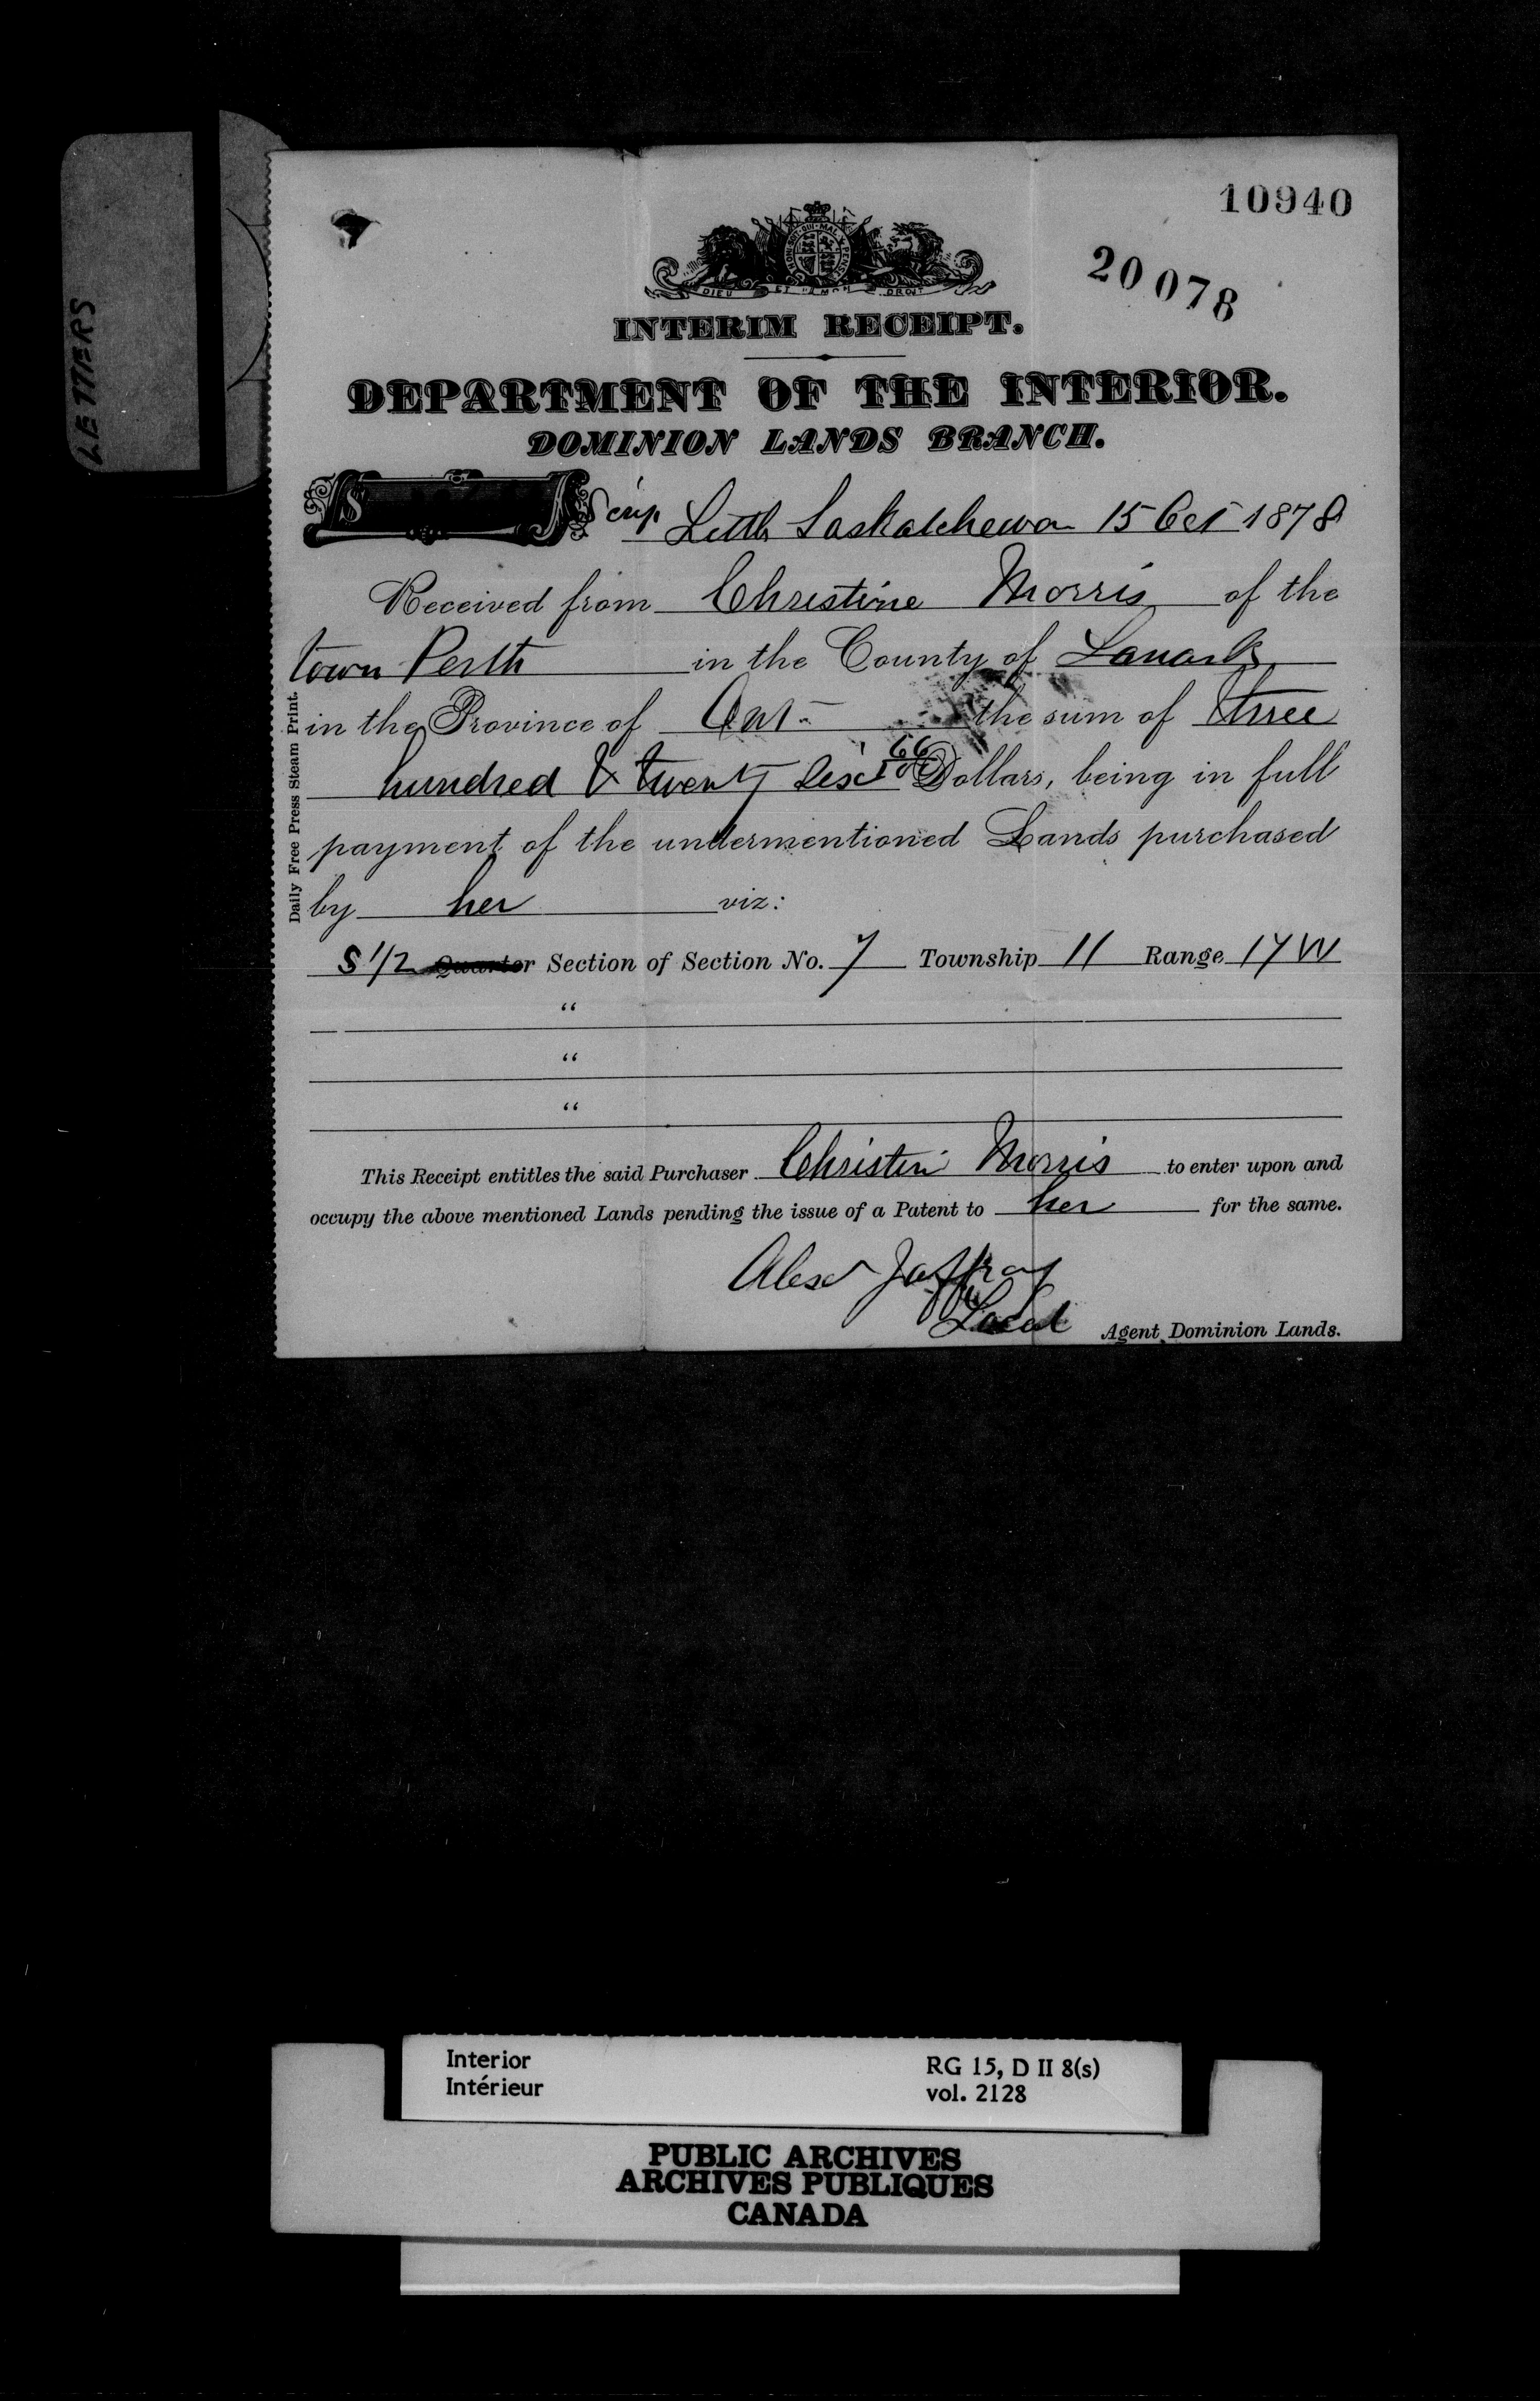 LETTERS
10940
20078
HONI·SOIT·QUI·MAL·Y·PENSE
DIEU ET MON DROIT
INTERIM RECEIPT.
DEPARTMENT OF THE INTERIOR.
DOMINION LANDS BRANCH.
$ Scrip Little Saskatchewan 15 Oct 1878
Received from Christine Morris of the
town Perth in the County of Lanark
in the Province of Ont. the sum of three
hundred & twenty six 66/100 Dollars, being in full
payment of the undermentioned Lands purchased
by her viz:
S 1/2 Quarter Section of Section No. 7 Township 11 Range 17 W
"
"
"
This Receipt entitles the said Purchaser Christin Morris to enter upon and
occupy the above mentioned Lands pending the issue of a Patent to her for the same.
Alexr Jaffray
Local Agent Dominion Lands.
Daily Free Press Steam Print.
Interior
Intérieur
RG 15, D II 8(s)
vol. 2128
PUBLIC ARCHIVES
ARCHIVES PUBLIQUES
CANADA